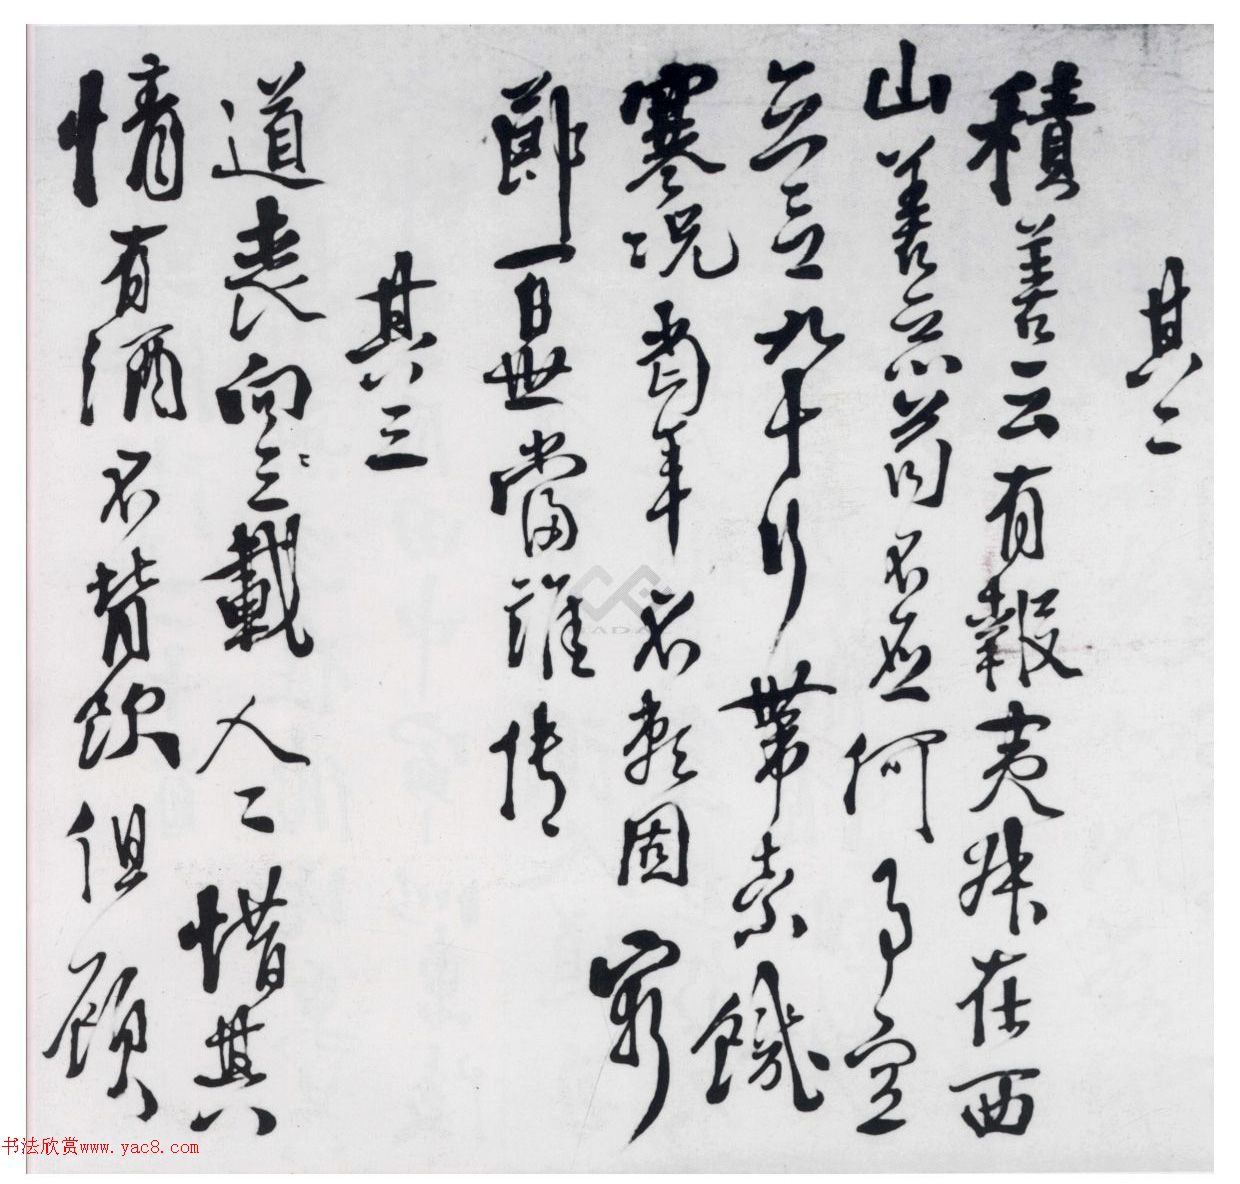 其二
積善云有報夷叔在西
山善惡苟不應何事空
立言九十行帶索饑
寒況當年不賴固窮
節百世當誰傳
其三
道喪向三載人〻惜其
情有酒不肯飲但顧
书法欣赏www.yac8.com